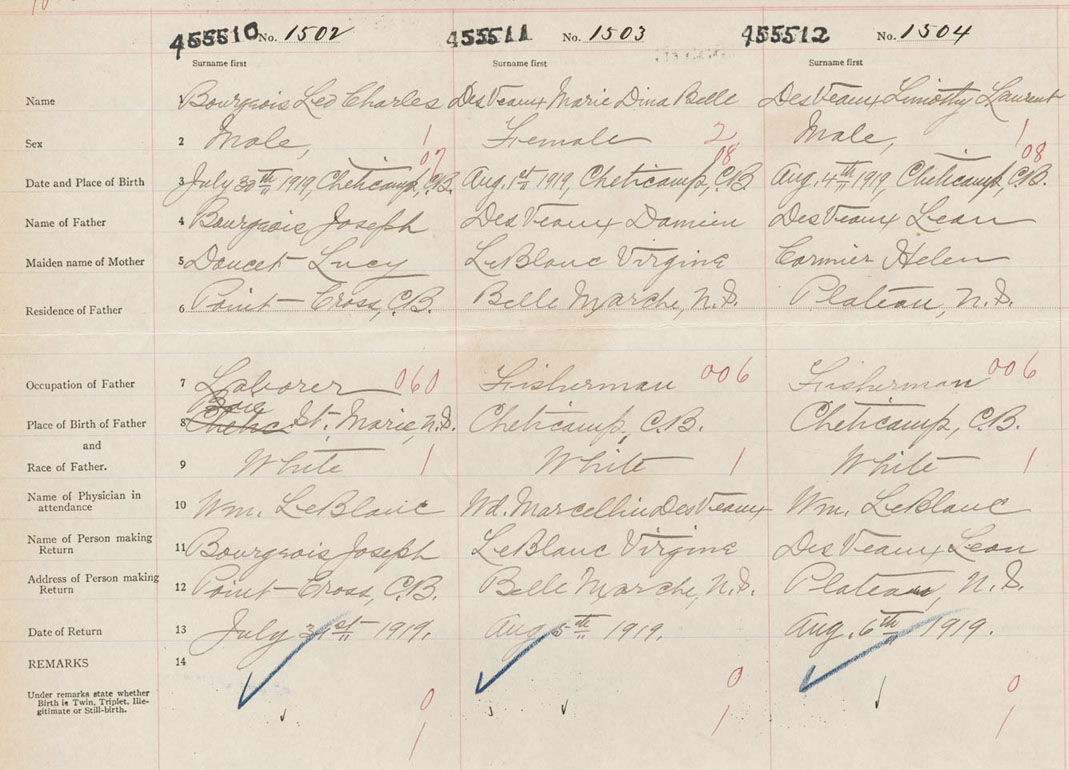 455510 No. 1502 455511 No. 1503 455512 No. 1504
Surname first Surname first Surname first
Name 1 Bourgeois Leo Charles DesVeaux Marie Dina Belle DesVeaux Timothy Laurent
Sex 2 Male, 1 Female 2 Male, 1
07 08 08
Date and Place of Birth 3 July 30th 1919, Cheticamp, C.B. Aug. 1st 1919, Cheticamp, C.B. Aug. 4th 1919, Cheticamp, C.B.
Name of Father 4 Bourgeois Joseph DesVeaux Damien DesVeaux Leon
Maiden name of Mother 5 Doucet Lucy LeBlanc Virgine Cormier Helen
Residence of Father 6 Point-Cross, C.B. Belle Marche, N.S. Plateau, N.S.
Occupation of Father 7 Laborer 060 Fisherman 006 Fisherman 006
Baie
Place of Birth of Father 8 Chetic St. Marie, N.S. Cheticamp, C.B. Cheticamp, C.B.
and
Race of Father. 9 White 1 White 1 White 1
Name of Physician in
attendance 10 Wm. LeBlanc Wd. Marcellin DesVeaux Wm. LeBlanc
Name of Person making
Return 11 Bourgeois Joseph LeBlanc Virgine DesVeaux Leon
Address of Person making
Return 12 Point-Cross, C.B. Belle Marche, N.S. Plateau, N.S.
Date of Return 13 July 31st 1919. Aug 5th 1919. Aug. 6th 1919.
REMARKS 14
Under remarks state whether
Birth is Twin, Triplet, Ille-
gitimate or Still-birth.
0 0 0
1 1 1